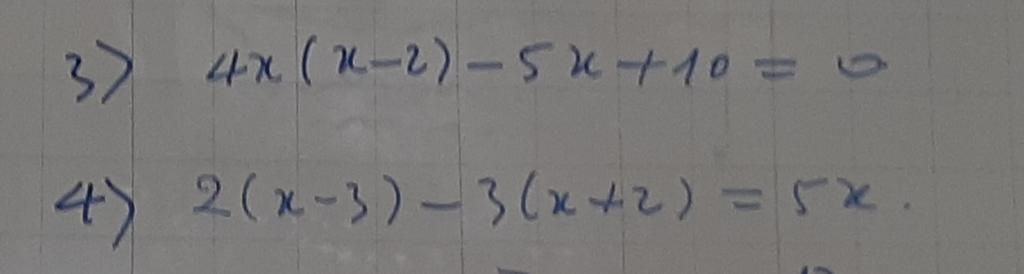 3) 4x(x-2)-5x+10=0
4) 2(x-3)-3(x+2)=5x.